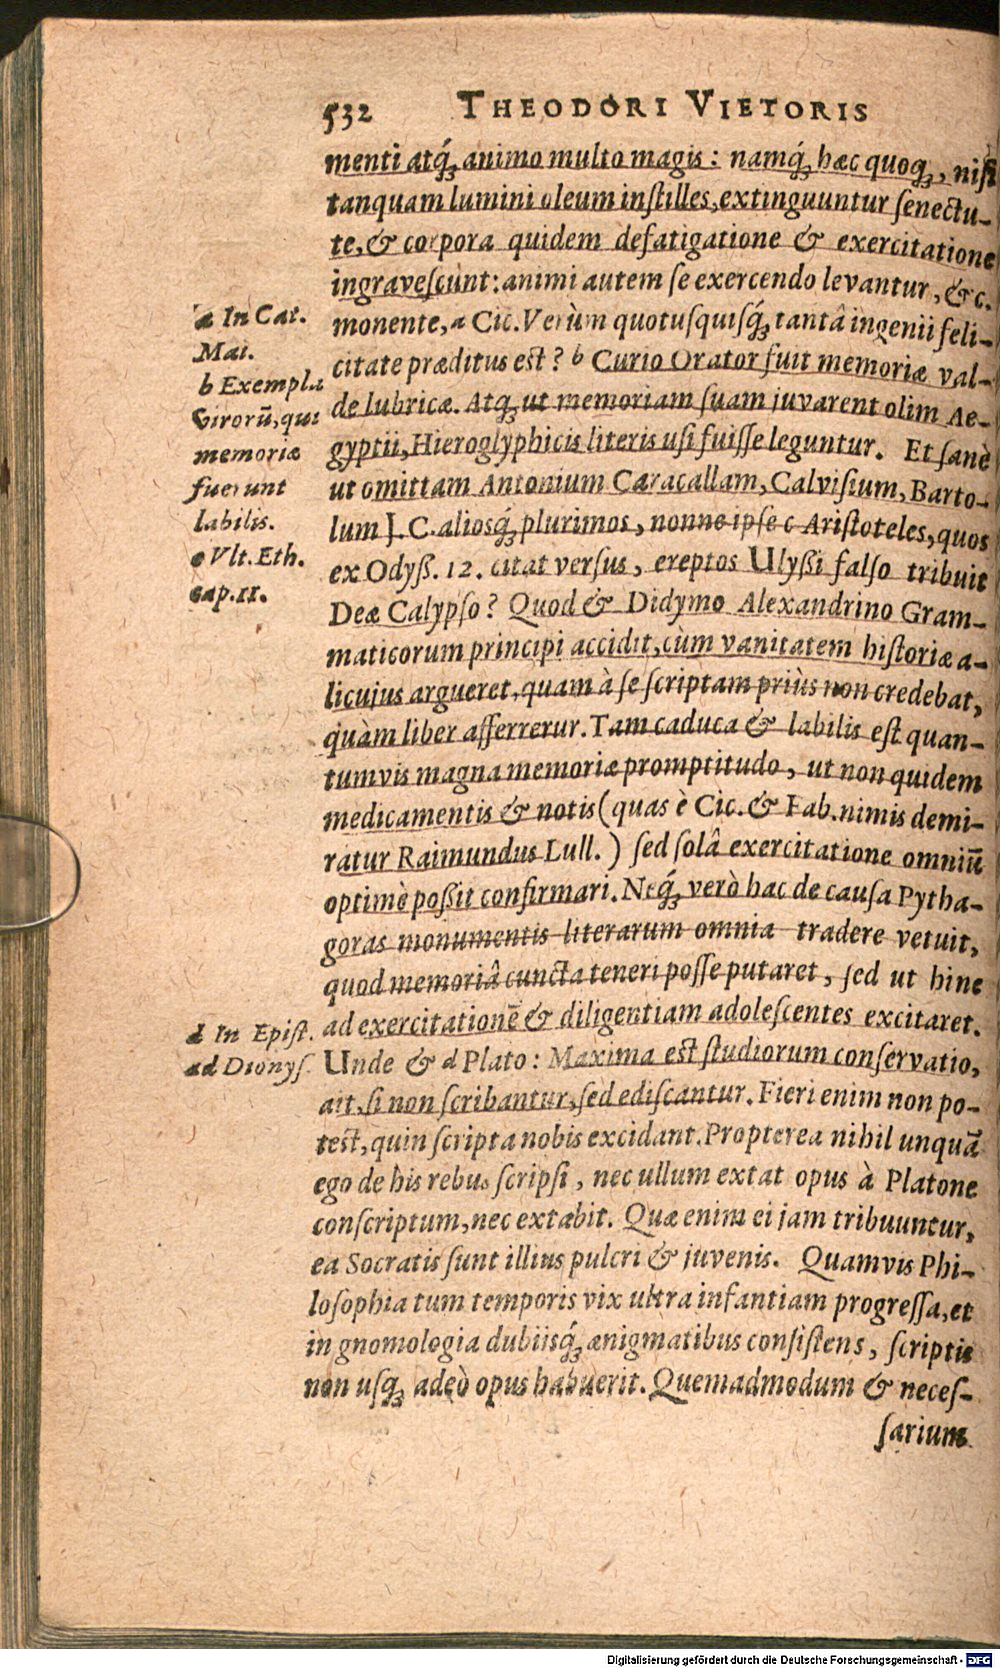 532 THEODORI VIETORIS
menti atq́ꝫ animo multo magis: namq́ꝫ hæc quoqꝫ, niſi
tanquam lumini oleum inſtilles, extinguuntur ſenectu-
te, & corpora quidem defatigatione & exercitatione
ingraveſcunt: animi autem ſe exercendo levantur, &c.
a In Cat.
Mai.
monente, a Cic. Verùm quotuſquiſq́ꝫ tantâ ingenii feli-
citate præditus est? b Curio Orator fuit memoriæ val-
b Exempla
virorū, qui
memoriæ
fuerunt
labilis.
de lubricæ. Atqꝫ ut memoriam ſuam juvarent olim Ae-
gyptii, Hieroglyphicis literis uſi fuiſſe leguntur. Et ſanè
ut omittam Antonium Caracallam, Calviſium, Barto-
lum J. C. aliosq́ꝫ plurimos, nonne ipſe c Ariſtoteles, quos
c Vlt. Eth.
cap. 11.
ex Odyß. 12. citat verſus, ereptos Ulyßi falſo tribuit
Deæ Calypſo? Quod & Didymo Alexandrino Gram-
maticorum principi accidit, cùm vanitatem hiſtoriæ a-
licujus argueret, quam à ſe ſcriptam priùs non credebat,
quàm liber afferrerur. Tam caduca & labilis eſt quan-
tumvis magna memoriæ promptitudo, ut non quidem
medicamentis & notis (quas è Cic. & Fab. nimis demi-
ratur Raimundus Lull.) ſed ſolâ exercitatione omniū
optimè poßit confirmari. Neq́ꝫ verò hac de cauſa Pytha-
goras monumentis literarum omnia tradere vetuit,
quod memoriâ cuncta teneri poſſe putaret, ſed ut hinc
ad exercitationē & diligentiam adoleſcentes excitaret.
d In Epiſt.
ad Dionyſ.
Unde & d Plato: Maxima est ſtudiorum conſervatio,
ait, ſi non ſcribantur, ſed ediſcantur. Fieri enim non po-
test, quin ſcripta nobis excidant. Propterea nihil unquā
ego de his rebus ſcripſi, nec ullum extat opus à Platone
conſcriptum, nec extabit. Quæ enim ei jam tribuuntur,
ea Socratis ſunt illius pulcri & juvenis. Quamvis Phi-
loſophia tum temporis vix ultra infantiam progreſſa, et
in gnomologia dubiisq́ꝫ ænigmatibus conſiſtens, ſcriptis
non uſqꝫ adeò opus habuerit. Quemadmodum & neceſ-
ſarium
Digitalisierung gefördert durch die Deutsche Forschungsgemeinschaft - DFG